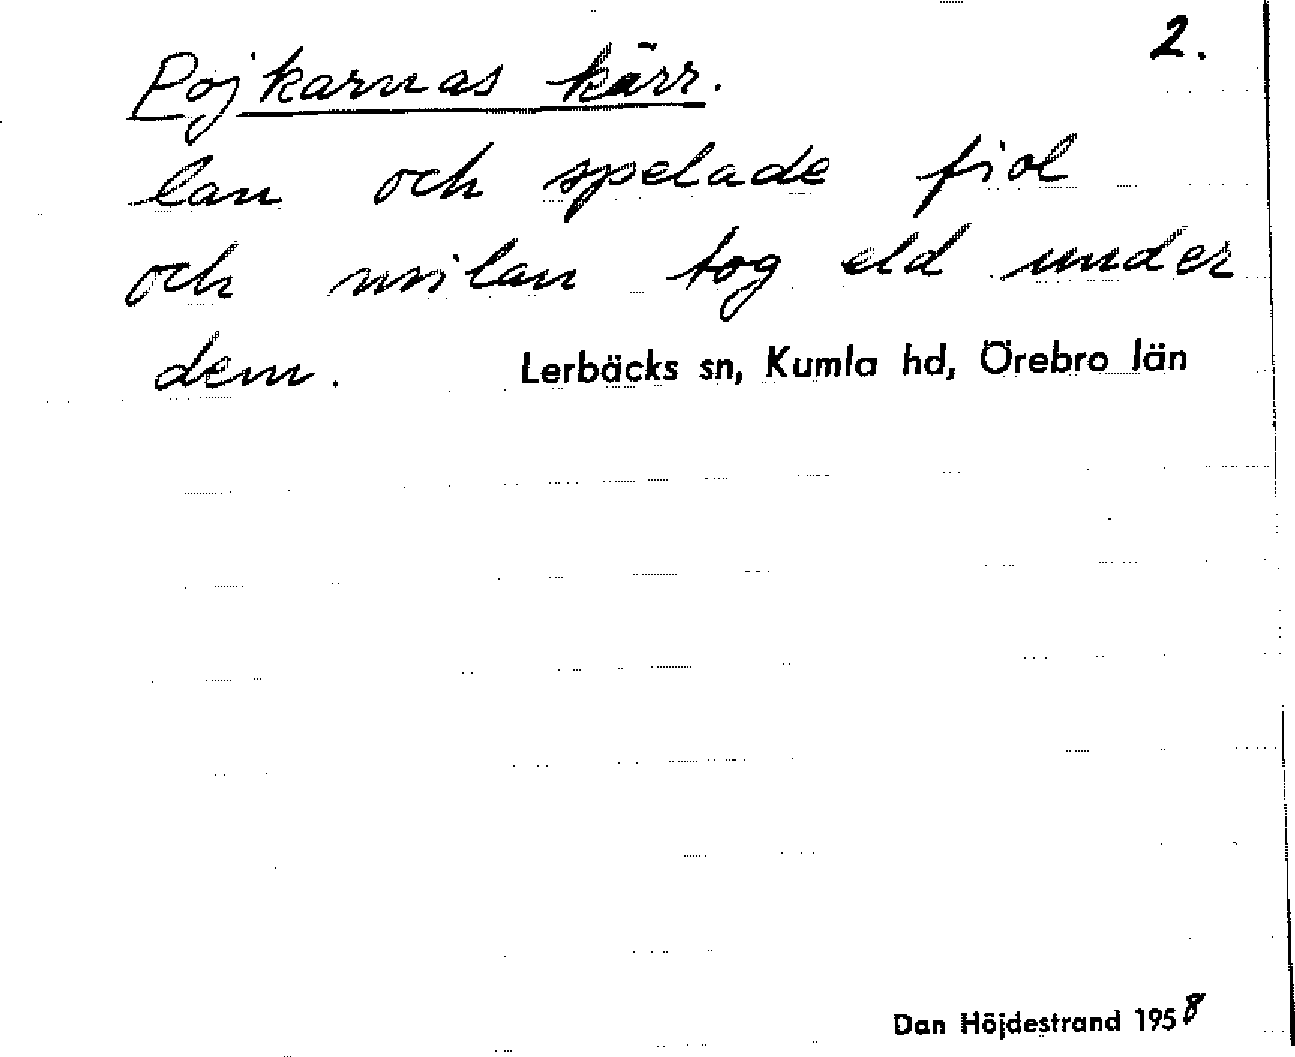 2.
Pojkarnas kärr.
lan och spelade fiol
och milan tog eld under
dem. Lerbäcks sn, Kumla hd, Örebro län
Dan Höjdestrand 1958